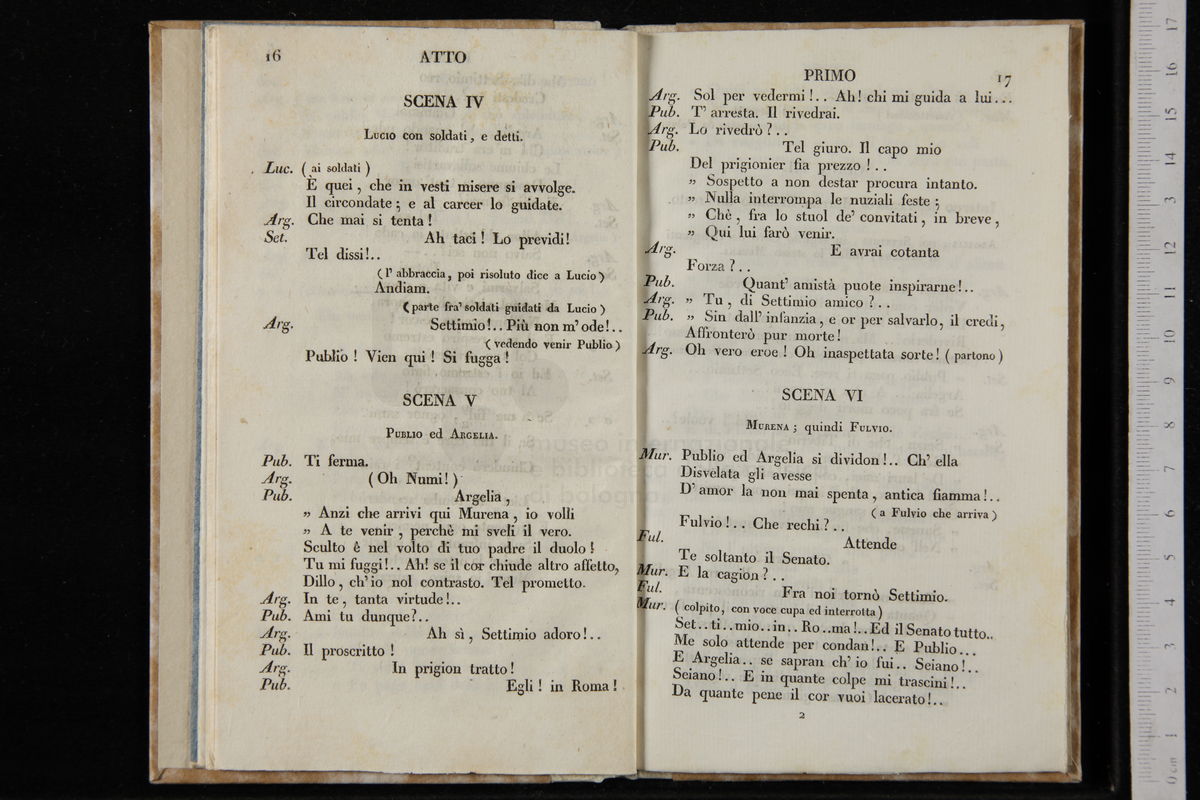 16
ATTO
SCENA IV
Lucio con soldati, e detti.
Luc. ( ai soldati )
È quei, che in vesti misere si avvolge.
Il circondate; e al carcer lo guidate.
Arg. Che mai si tenta!
Set. Ah taci! Lo previdi!
Tel dissi!..
( l' abbraccia, poi risoluto dice a Lucio )
Andiam.
( parte fra' soldati guidati da Lucio )
Arg. Settimio!.. Più non m' ode!..
( vedendo venir Publio )
Publio! Vien qui! Si fugga!
SCENA V
Publio ed Argelia.
Pub. Ti ferma.
Arg. ( Oh Numi! )
Pub. Argelia,
» Anzi che arrivi qui Murena, io volli
» A te venir, perchè mi sveli il vero.
Sculto è nel volto di tuo padre il duolo!
Tu mi fuggi!.. Ah! se il cor chiude altro affetto,
Dillo, ch' io nol contrasto. Tel prometto.
Arg. In te, tanta virtude!..
Pub. Ami tu dunque?..
Arg. Ah sì, Settimio adoro!..
Pub. Il proscritto!
Arg. In prigion tratto!
Pub. Egli! in Roma!
PRIMO
17
Arg. Sol per vedermi!.. Ah! chi mi guida a lui...
Pub. T' arresta. Il rivedrai.
Arg. Lo rivedrò?..
Pub. Tel giuro. Il capo mio
Del prigionier fia prezzo!..
» Sospetto a non destar procura intanto.
» Nulla interrompa le nuziali feste;
» Chè, fra lo stuol de' convitati, in breve,
» Qui lui farò venir.
Arg. E avrai cotanta
Forza?..
Pub. Quant' amistà puote inspirarne!..
Arg. » Tu, di Settimio amico?..
Pub. » Sin dall' infanzia, e or per salvarlo, il credi,
Affronterò pur morte!
Arg. Oh vero eroe! Oh inaspettata sorte! ( partono )
SCENA VI
Murena; quindi Fulvio.
Mur. Publio ed Argelia si dividon!.. Ch' ella
Disvelata gli avesse
D' amor la non mai spenta, antica fiamma!..
( a Fulvio che arriva )
Fulvio!.. Che rechi?..
Ful. Attende
Te soltanto il Senato.
Mur. E la cagion?..
Ful. Fra noi tornò Settimio.
Mur. ( colpito, con voce cupa ed interrotta )
Set..ti..mio..in..Ro..ma!..Ed il Senato tutto..
Me solo attende per condan!.. E Publio...
E Argelia.. se sapran ch' io fui.. Seiano!..
Seiano!.. E in quante colpe mi trascini!..
Da quante pene il cor vuoi lacerato!..
2
museo internazionale
e biblioteca
di bologna
0 cm 1 2 3 4 5 6 7 8 9 10 11 12 13 14 15 16 17